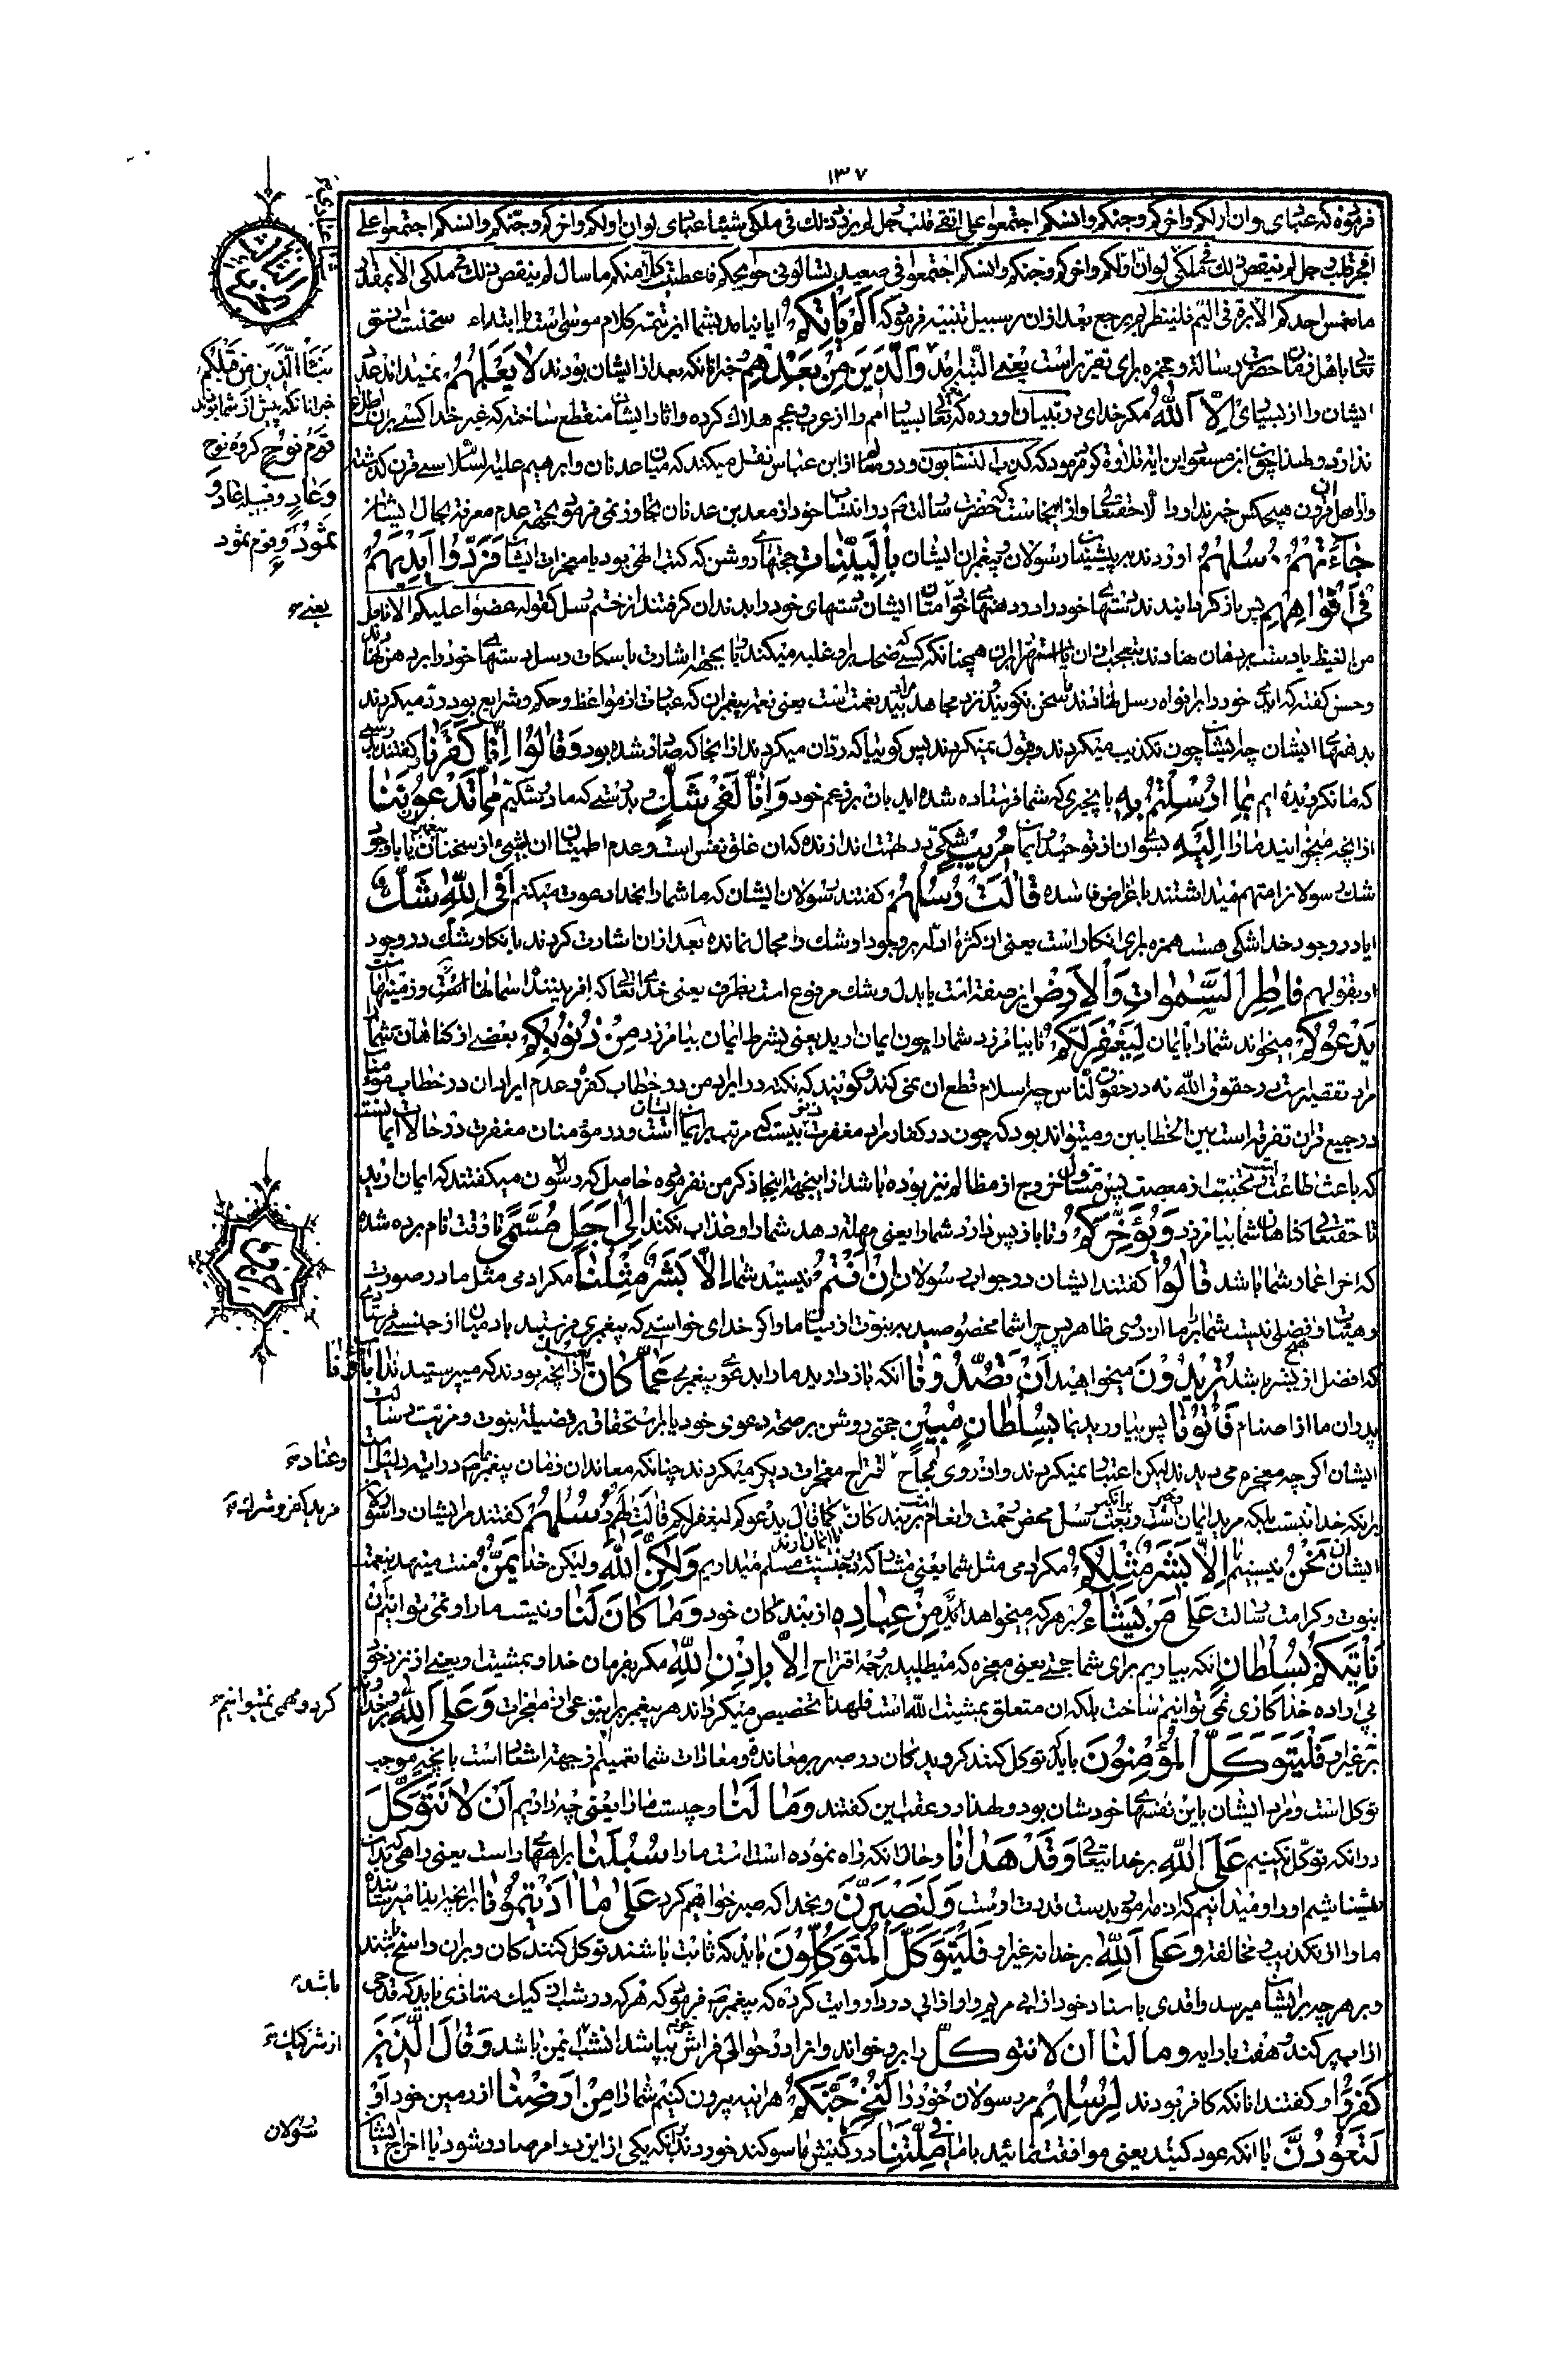 ١٣٧
فرموده که عبادی لو ان اولکم واخرکم وجنکم وانسکم اجتمعوا علی اتقی قلب رجل لم یزد ذلک فی ملکی شیئا عبادی لو ان اولکم واخرکم وجنکم وانسکم اجتمعوا علی
افجر قلب رجل لم ینقص ذلک من ملکی لو ان اولکم واخرکم وجنکم وانسکم اجتمعوا فی صعید یسالونی حوایجکم فاعطیت کلا منکم ما سال لم ینقص ذلک من ملکی الا بمقدار
ما یغمس احدکم الابرة فی الیم فلینظر بم یرجع بعد ازان بر سبیل تنبیه فرمود که اَلَمْ یَأْتِکُمْ ایا نیامد بشما این تتمه کلام موسی است یا ابتداء سخنست از حق
تعالی با اهل زمان حضرت رسالة و همزه برای تقریر است یعنی البته امد وَالَّذینَ مِنْ بَعْدِهِمْ خبر انانکه بعد از ایشان بودند لا یَعْلَمُهُمْ نمیداند عدد
ایشان را از بسیاری اِلاَّ اللّٰهُ مکر خدای در تبیان اورده که تعالی بسیاری امم را از عرب و عجم هلاک کرده و اثار ایشان منقطع ساخته که غیر خدا کسی بران اطلاع
ندارد ولهذا چون ابن مسعود این ایه تلاوة کردی فرمود که کذب النسابون و در وسیط از ابن عباس نقل میکند که میان عدنان و ابرهیم علیه السلام سی قرن کذشته
و از اهل ان قرون هیچکس خبر ندارد الا حقتعالی و از اینجاست که حضرت رسالت در انتساب خود از معد بن عدنان تجاوز نمی فرمود بجهة عدم معرفة بحال ایشان
جٰاءَتْهُمْ رُسُلُهُمْ اوردند بر ایشان رسولان و پیغمبران ایشان بِالْبَیِّنٰاتِ حجتهای روشن که کتب الهی بود یا معجزات ایشان فَرَدُّوا اَیْدِیَهُمْ
فی اَفْوٰاهِهِمْ پس باز کردانیدند دستهای خود را در دهنهای خود امتان ایشان دستهای خود را بدندان کرفتند از خشم رسل کقوله عضوا علیکم الانامل
من الغیظ یا دست بر دهان نهادند بتعجب ازان یا استهزا بران همچنانکه کسی که ضحک بر او غلبه میکند و یا بجهة اشارت باسکات رسل دستهای خود را بر دهن نهادند
و حسن کفته که ایدی خود را بر افواه رسل نهادند تا سخن نکویند و نزد مجاهد مراد بید نعمت است یعنی نعمة پیغمبران که عبارت از مواعظ و حکم و شرایع بود رد میکردند
بدهنهای ایشان چه ایشان چون تکذیب میکردند و قبول نمیکردند پس کوییا که رد ان میکردند از انجا که صادر شده بود وَقٰالُوا اِنّٰا کَفَرْنٰا و کفتند بدرستی
که ما نکرویده ایم بِمٰا اُرْسِلْتُمْ بِهِ بانچیزی که شما فرستاده شده اید بان بر زعم خود وَاِنّٰا لَفی شَکٍّ و بدرستی که ما در شکیم مِمّٰا تَدْعُونَنٰا
از انچه میخوانید ما را اِلَیْهِ بسوی ان از توحید و ایمان مُریبٍ شکی در تهمت اندازنده که ان قلق نفس است و عدم اطمینان ان بشیء از سخنان یا با وجود
شک رسولانرا متهم میداشتند باغراض فاسده قٰالَتْ رُسُلُهُمْ کفتند رسولان ایشان که ما شما را بخدا دعوت میکنیم اَفِی اللّٰهِ شَکٌّ
ایا در وجود خدا شکی هست همزه برای انکار است یعنی ان کثرة ادله بر وجود او شک را مجال نمانده بعد ازان اشارت کردند بانکار و شک در وجود
او بقولهم فٰاطِرِ السَّمٰوٰاتِ وَالْاَرْضِ این صفة است یا بدل و شک مرفوع است بظرف یعنی خدای تعالی که افریننده اسمانها است و زمینها
یَدْعُوکُمْ میخواند شما را بایمان لِیَغْفِرَ لَکُمْ تا بیامرزد شما را چون ایمان ارید یعنی بشرط ایمان بیامرزد مِنْ ذُنُوبِکُمْ بعضی از کناهان شما
مراد تقصیراتست در حقوق الله نه در حقوق الناس چه اسلام قطع ان نمی کند و کویند که نکته در ایراد من در خطاب کفره و عدم ایراد ان در خطاب مؤمنان
در جمیع قران تفرقه است بین الخطابین و میتواند بود که چون در کفار مراد مغفرت مرتب بر ایمان است و در مؤمنان مغفرت در حالات ایمان
که باعث طاعت و تجنب از معصیت پس متناول خروج از مظالم نیز بوده باشد از اینجهة اینجا ذکر من نفرموده حاصل که رسولان میکفتند که ایمان ارید
تا حقتعالی کناهان شما بیامرزد وَیُؤَخِّرَکُمْ و تا باز پس دارد شما را یعنی مهلة دهد شما را و عذاب نکند اِلیٰ اَجَلٍ مُسَمًّی تا وقت نام برده شده
که اخر اعمار شما باشد قٰالُوا کفتند ایشان در جواب رسولان اِنْ اَنْتُمْ نیستید شما اِلاَّ بَشَرٌ مِثْلُنٰا مکر ادمی مثل ما در صورت
و هیئت و هیچ فضلی نیست شما را بر ما از روی ظاهر پس چرا شما مخصوصید به نبوت از میان ما و اکر خدای خواستی که پیغمبری فرستد باد میان از جنسی فرستادی
که افضل از بشر باشد تُریدُونَ میخواهید اَنْ تَصُدُّونٰا انکه باز دارید ما را بدعوی پیغمبری عَمّٰا کٰانَ از انچه بودند که میپرستیدند اٰبٰاؤُنٰا
پدران ما از اصنام فَأْتُونٰا پس بیاورید بما بِسُلْطٰانٍ مُبینٍ حجتی روشن بر صحة دعوی خود یا بر استحقاق بر فضیلة نبوت و مزیت رسالت
ایشان اکر چه معجزه می دیدند لیکن اعتبار نمیکردند و از روی لجاج اقتراح معجزات دیکر میکردند چنانکه معاندان زمان پیغمبر و این دلیل است
برانکه خدا نیست بلکه مرید ایمان است و بعث رسل محض رحمت و انعام بر بندکان کما قال یدعوکم لیغفر لکم قٰالَتْ لَهُمْ رُسُلُهُمْ کفتند مر ایشان را رسولان
ایشان اِنْ نَحْنُ نیستیم ما اِلاَّ بَشَرٌ مِثْلُکُمْ مکر ادمی مثل شما یعنی مشارکة در جنسیت مسلم میداریم وَلٰکِنَّ اللّٰهَ ولیکن خدا یَمُنُّ منت مینهد بنعمت
نبوت و کرامت رسالت عَلیٰ مَنْ یَشٰاءُ بر هر که میخواهد مِنْ عِبٰادِهِ از بندکان خود وَمٰا کٰانَ لَنٰا و نیست ما را و نمی توانیم اَنْ
نَأْتِیَکُمْ بِسُلْطٰانٍ انکه بیاریم برای شما حجتی یعنی معجزه که میطلبید بوجه اقتراح اِلاَّ بِاِذْنِ اللّٰهِ مکر بفرمان خدا و بمشیت او یعنی از نزد خود
بی اراده خدا کاری نمی توانیم ساخت بلکه ان متعلق بمشیت الله است فلهذا تخصیص میکرداند هر پیغمبر را بنوعی از معجزات وَعَلَی اللّٰهِ و بر خدا
نه بر غیر او فَلْیَتَوَکَّلِ الْمُؤْمِنُونَ باید که توکل کنند کرویدکان در صبر بر معانده و معادات شما تعمیم امر جهة اشعار است بانچه موجب
توکل است و مراد ایشان باین نفسهای خودشان بود ولهذا در عقب این کفتند وَمٰا لَنٰا و چیست ما را یعنی چه داریم اَنْ لاٰ نَتَوَکَّلَ
در انکه توکل نکنیم عَلَی اللّٰهِ بر خدا تعالی وَقَدْ هَدٰانٰا و حال انکه راه نموده است ما را سُبُلَنٰا براههای راست یعنی راهی که بدان
بشناسیم او را و میدانیم که ازمه امور بدست قدرت اوست وَلَنَصْبِرَنَّ و بخدا که صبر خواهیم کرد عَلیٰ مٰا اٰذَیْتُمُونٰا بر انچه ایذا میرسانید
ما را از تکذیب و مخالفة وَعَلَی اللّٰهِ بر خدا نه غیر او فَلْیَتَوَکَّلِ الْمُتَوَکِّلُونَ باید که ثابت باشند توکل کنندکان و بران راسخ باشند
و بر هر چه بر ایشان میرسد واقدی باسناد خود از ابی مریم و او از ابی درداء روایت کرده که پیغمبر فرمود که هر که در شب از کیک متاذی باید که قدحی
از اب پر کند و هفت بار ایه وما لنا ان لا نتوکل را برو خواند و انرا در حوالی فراش بپاشد انشب ایمن باشد وَقٰالَ الَّذینَ
کَفَرُوا و کفتند انانکه کافر بودند لِرُسُلِهِمْ مر رسولان خود را لَنُخْرِجَنَّکُمْ هراینه بیرون کنیم شما را مِنْ اَرْضِنٰا از زمین خود اَوْ
لَتَعُودُنَّ یا انکه عود کنید یعنی موافقت نمائید با ما فی مِلَّتِنٰا در کیش ما سوکند خوردند بانکه یکی از این دو امر صادر شود یا اخراج ایشان
نَبَؤُا الَّذینَ مِنْ قَبْلِکُمْ
خبر انانکه پیش از شما بودند
قَوْمِ نُوحٍ کروه نوح
وَعٰادٍ و قبیله عاد و
ثَمُودَ و قوم ثمود
یعنی
وعناد
مرید کفر و شرک
کرد و مهمی نمیتوانیم
باشد
از شر کیک
رسولان